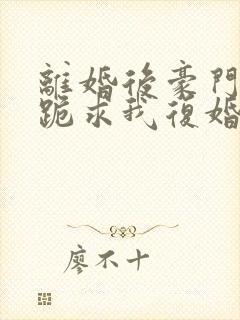 離婚後豪門
跪求我復婚
廖不十